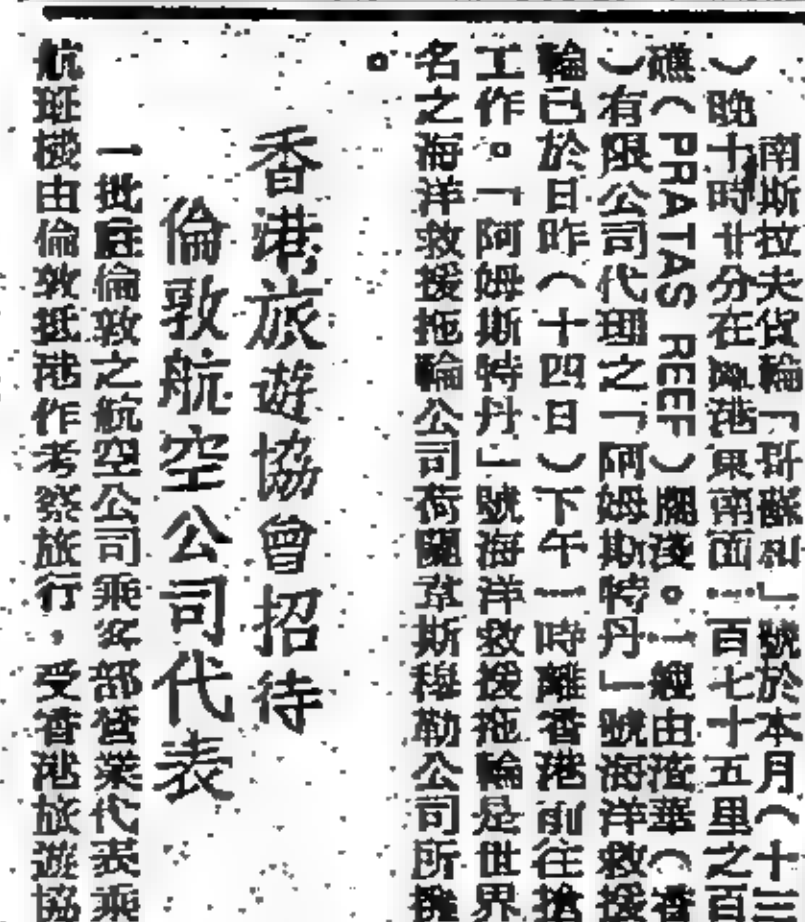 南斯拉夫貨輪「哥蘇利」號於本月（十三
）晚十時廿分在香港東南面一百七十五里之百
礁（PRATAS REEF）擱淺。一經由渣華（香
）有限公司代理之「阿姆斯特丹」號海洋救援
輪已於日昨（十四日）下午一時離香港前往搶
工作。「阿姆斯特丹」號海洋救援拖輪是世界
名之海洋救援拖輪公司荷蘭京斯穆勒公司所擁
。
香港旅遊協會招待
倫敦航空公司代表
一批駐倫敦之航空公司乘客部營業代表乘
航班機由倫敦抵港作考察旅行。受香港旅遊協